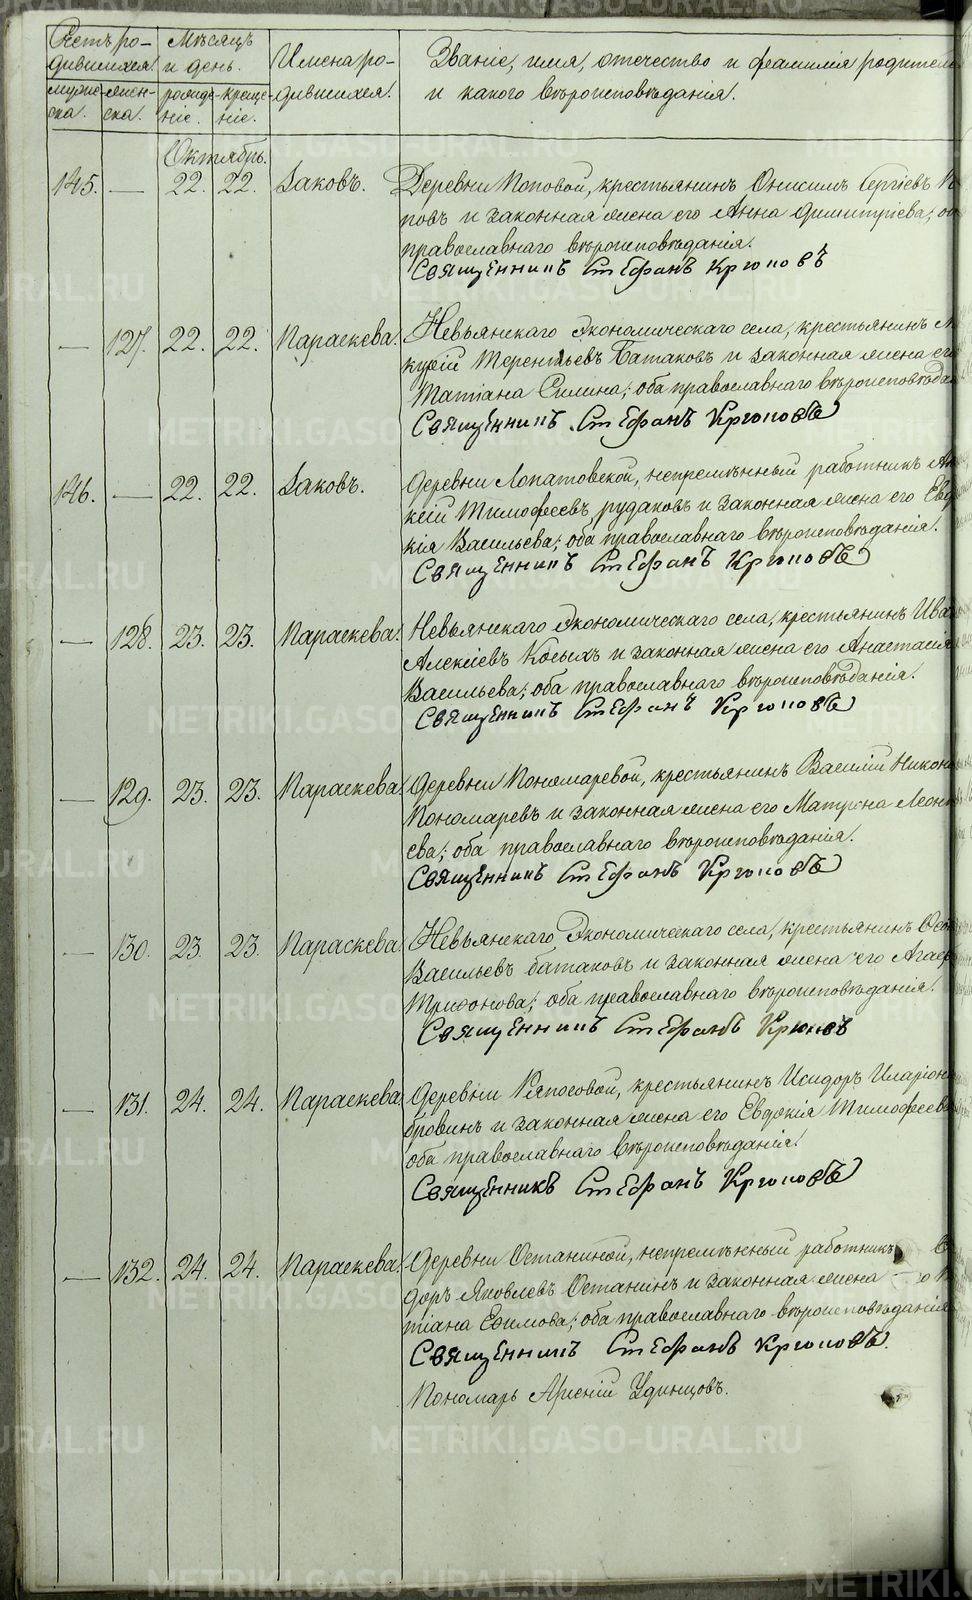 Счетъ ро-
дившихся.
Мѣсяцъ
и день.
Имена ро-
дившихся.
Званіе, имя, отечество и фамилія родителе
и какого вѣроисповѣданія.
муже-
ска.
жен-
ска.
рожде-
ніе.
креще-
ніе.
Октябрь.
145. — 22. 22. Іаковъ. Деревни Поповой, крестьянинъ Онисимъ Сергіевъ По
повъ и законная жена его Анна Димитріева; об
православнаго вѣроисповѣданія.
Священникъ Стефанъ Крюповъ
— 127. 22. 22. Параскева. Невьянскаго Экономическаго села, крестьянинъ М
курій Терентьевъ Батаковъ и законная жена его
Татіана Силина; оба православнаго вѣроисповѣдан
Священникъ Стефанъ Крюповъ
146. — 22. 22. Іаковъ. Деревни Лопатовской, непремѣнный работникъ Ал
кѣй Тимофеевъ рудаковъ и законная жена его Евд
кія Васильева; оба православнаго вѣроисповѣданія.
Священникъ Стефанъ Крюповъ
— 128. 23. 23. Параскева. Невьянскаго Экономическаго села, крестьянинъ Ива
Алексіевъ Косыхъ и законная жена его Анастасія
Васильева; оба православнаго вѣроисповѣданія.
Священникъ Стефанъ Крюповъ
— 129. 23. 23. Параскева. Деревни Пономаревой, крестьянинъ Василій Никон
Пономаревъ и законная жена его Матрона Леонт
ева; оба православнаго вѣроисповѣданія.
Священникъ Стефанъ Крюповъ
— 130. 23. 23. Параскева. Невьянскаго Экономическаго села, крестьянинъ
Васильевъ батаковъ и законная жена его Агаф
Трифонова; оба православнаго вѣроисповѣданія.
Священникъ Стефанъ Крюповъ
— 131. 24. 24. Параскева. Деревни Ряпосовой, крестьянинъ Исидоръ Иларіон
бровинъ и законная жена его Евдокія Тимофеева
оба православнаго вѣроисповѣданія.
Священникъ Стефанъ Крюповъ
— 132. 24. 24. Параскева. Деревни Останиной, непремѣнный работникъ
доръ Яковлевъ Останинъ и законная жена
тіана Ефимова; оба православнаго вѣроисповѣданія
Священникъ Стефанъ Крюповъ.
Пономарь Арсеній Удинцовъ.
METRIKI.GASO-URAL.RU